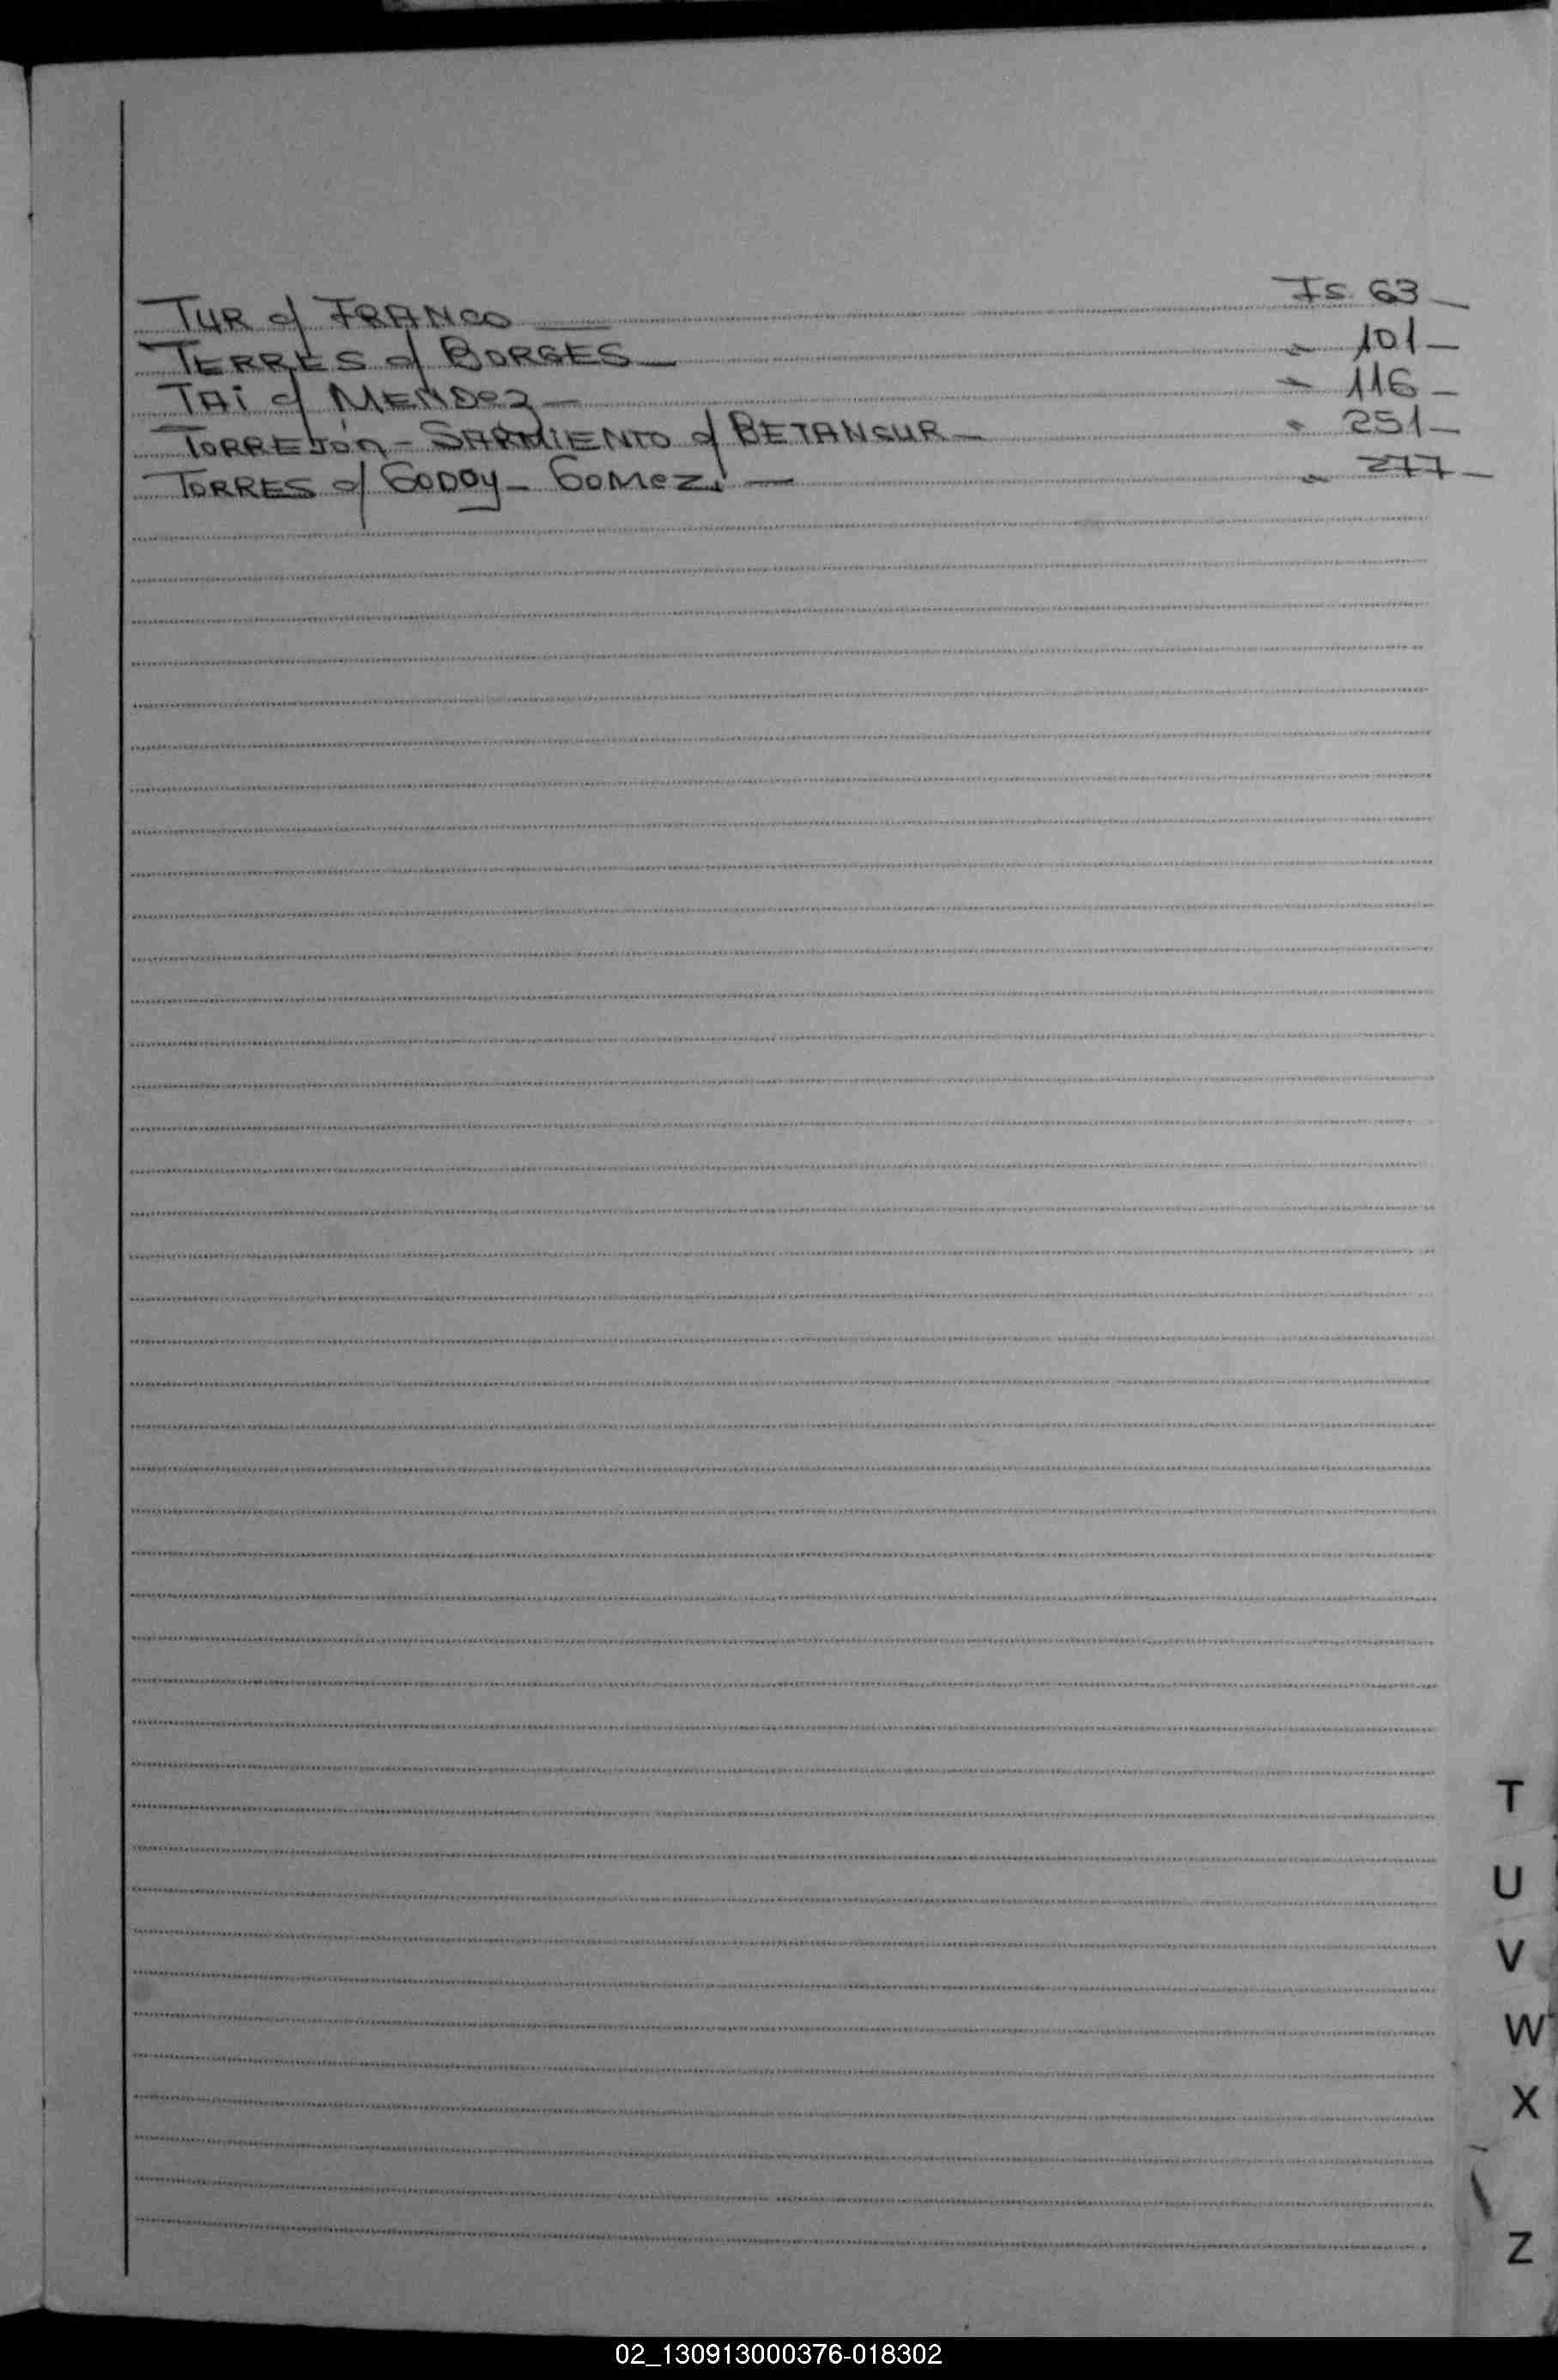 TUR c/ FRANCO — Fs. 63 —
TERRES c/ BORGES — " 101 —
TAi c/ MENDEZ — " 116 —
TORREJÓN - SARMIENTO c/ BETANSUR — " 251 —
TORRES c/ GODOY - GOMEZ. — " 277 —
T
U
V
W
X
Z
02_130913000376-018302